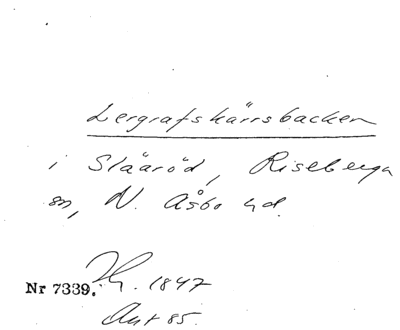 Lergrafskärrsbacken
i Slääröd, Riseberga
sn, N. Åsbo hd.
Nr 7339. 1847
Ant 85.